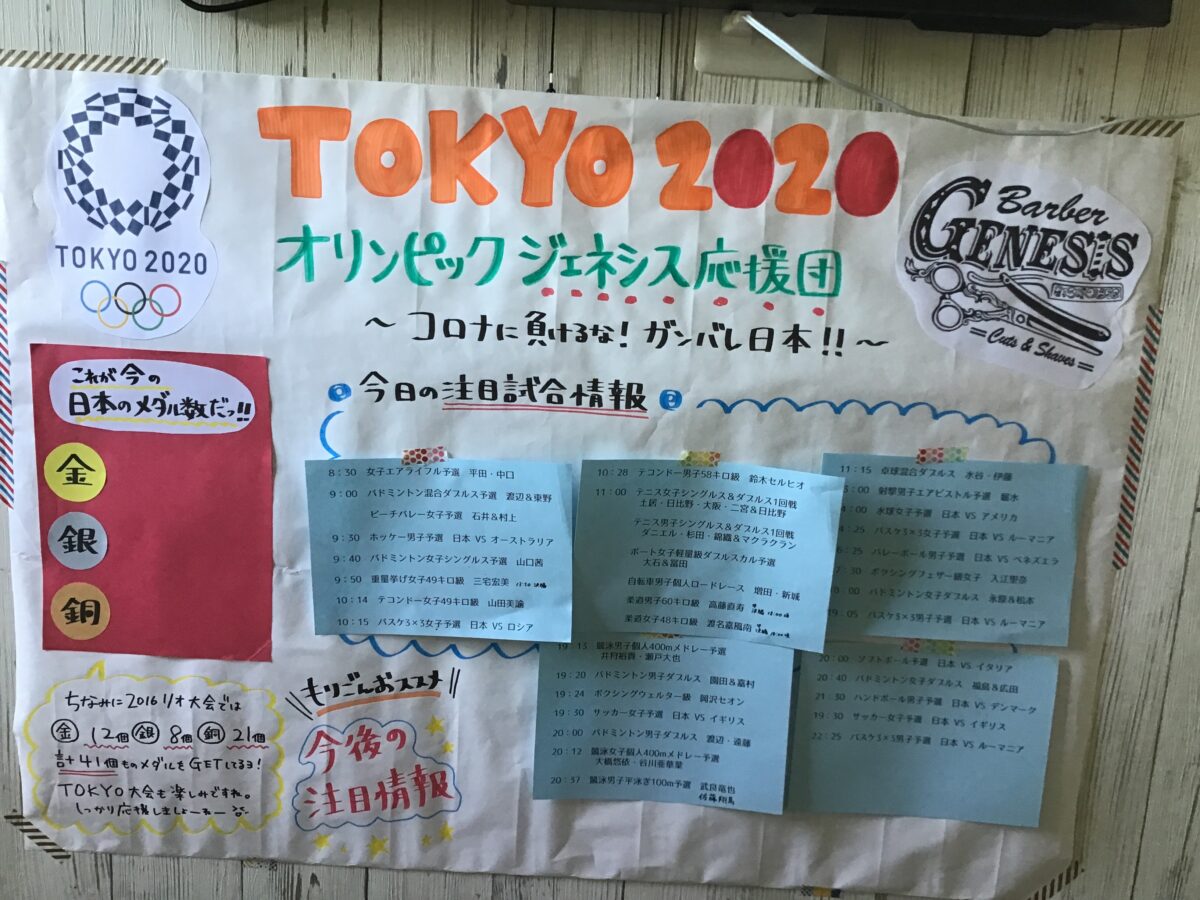 TOKYO 2020
TOKYO 2020
オリンピック ジェネシス応援団
～コロナに負けるな！ガンバレ日本!!～
Barber
GENESIS
Cuts & Shaves
これが今の
日本のメダル数だっ!!
金
銀
銅
今日の注目試合情報
8：30 女子エアライフル予選 平田・中口
9：00 バドミントン混合ダブルス予選 渡辺＆東野
ビーチバレー女子予選 石井＆村上
9：30 ホッケー男子予選 日本 VS オーストラリア
9：40 バドミントン女子シングルス予選 山口茜
9：50 重量挙げ女子49キロ級 三宅宏美
10：14 テコンドー女子49キロ級 山田美諭
10：15 バスケ3×3女子予選 日本 VS ロシア
10：28 テコンドー男子58キロ級 鈴木セルヒオ
11：00 テニス女子シングルス＆ダブルス1回戦
土居・日比野・大坂・二宮＆日比野
テニス男子シングルス＆ダブルス1回戦
ダニエル・杉田・錦織＆マクラクラン
ボート女子軽量級ダブルスカル予選
大石＆冨田
自転車男子個人ロードレース 増田・新城
柔道男子60キロ級 高藤直寿
柔道女子48キロ級 渡名喜風南
11：15 卓球混合ダブルス 水谷・伊藤
3：00 射撃男子エアピストル予選 堀水
4：00 水球女子予選 日本 VS アメリカ
4：25 バスケ3×3女子予選 日本 VS ルーマニア
6：25 バレーボール男子予選 日本 VS ベネズエラ
7：30 ボクシングフェザー級女子 入江聖奈
8：00 バドミントン女子ダブルス 永原＆松本
19：05 バスケ3×3男子予選 日本 VS ルーマニア
19：13 競泳男子個人400mメドレー予選
井狩裕貴・瀬戸大也
19：20 バドミントン男子ダブルス 園田＆嘉村
19：24 ボクシングウェルター級 岡沢セオン
19：30 サッカー女子予選 日本 VS イギリス
20：00 バドミントン男子ダブルス 渡辺・遠藤
20：12 競泳女子個人400mメドレー予選
大橋悠依・谷川亜華葉
20：37 競泳男子平泳ぎ100m予選 武良竜也
佐藤翔馬
20：00 ソフトボール予選 日本 VS イタリア
20：40 バドミントン女子ダブルス 福島＆広田
21：30 ハンドボール男子予選 日本 VS デンマーク
19：30 サッカー女子予選 日本 VS イギリス
22：25 バスケ3×3男子予選 日本 VS ルーマニア
ちなみに2016リオ大会では
金 12個 銀 8個 銅 21個
計41個ものメダルをGETしてるヨ！
TOKYO大会も楽しみですね。
しっかり応援しましょーねー
もりごんおススメ
今後の
注目情報